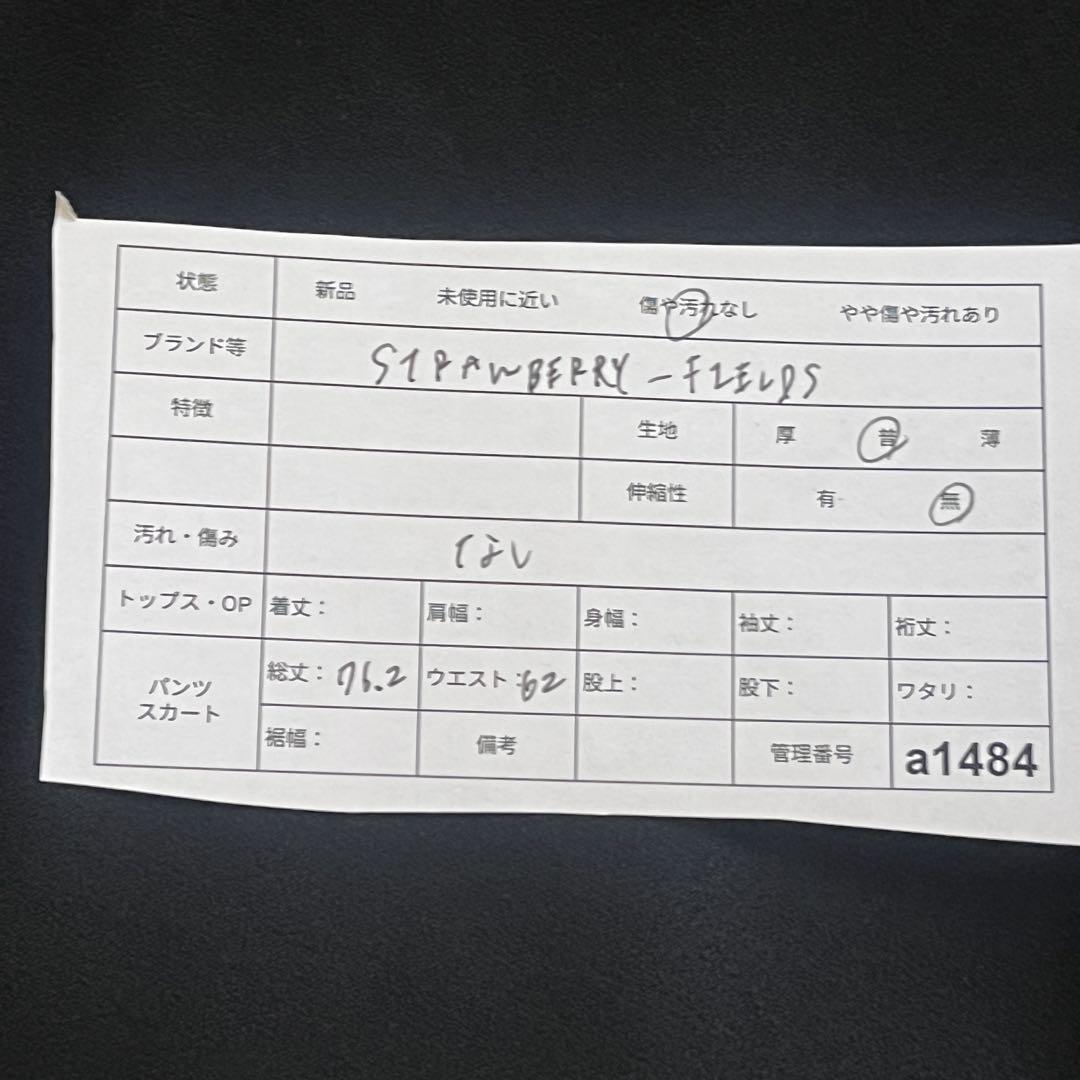 状態 新品 未使用に近い 傷や汚れなし やや傷や汚れあり
ブランド等 STRAWBERRY-FIELDS
特徴 生地 厚 普 薄
伸縮性 有 無
汚れ・傷み なし
トップス・OP 着丈： 肩幅： 身幅： 袖丈： 裄丈：
パンツ スカート 総丈：76.2 ウエスト：62 股上： 股下： ワタリ：
裾幅： 備考 管理番号 a1484